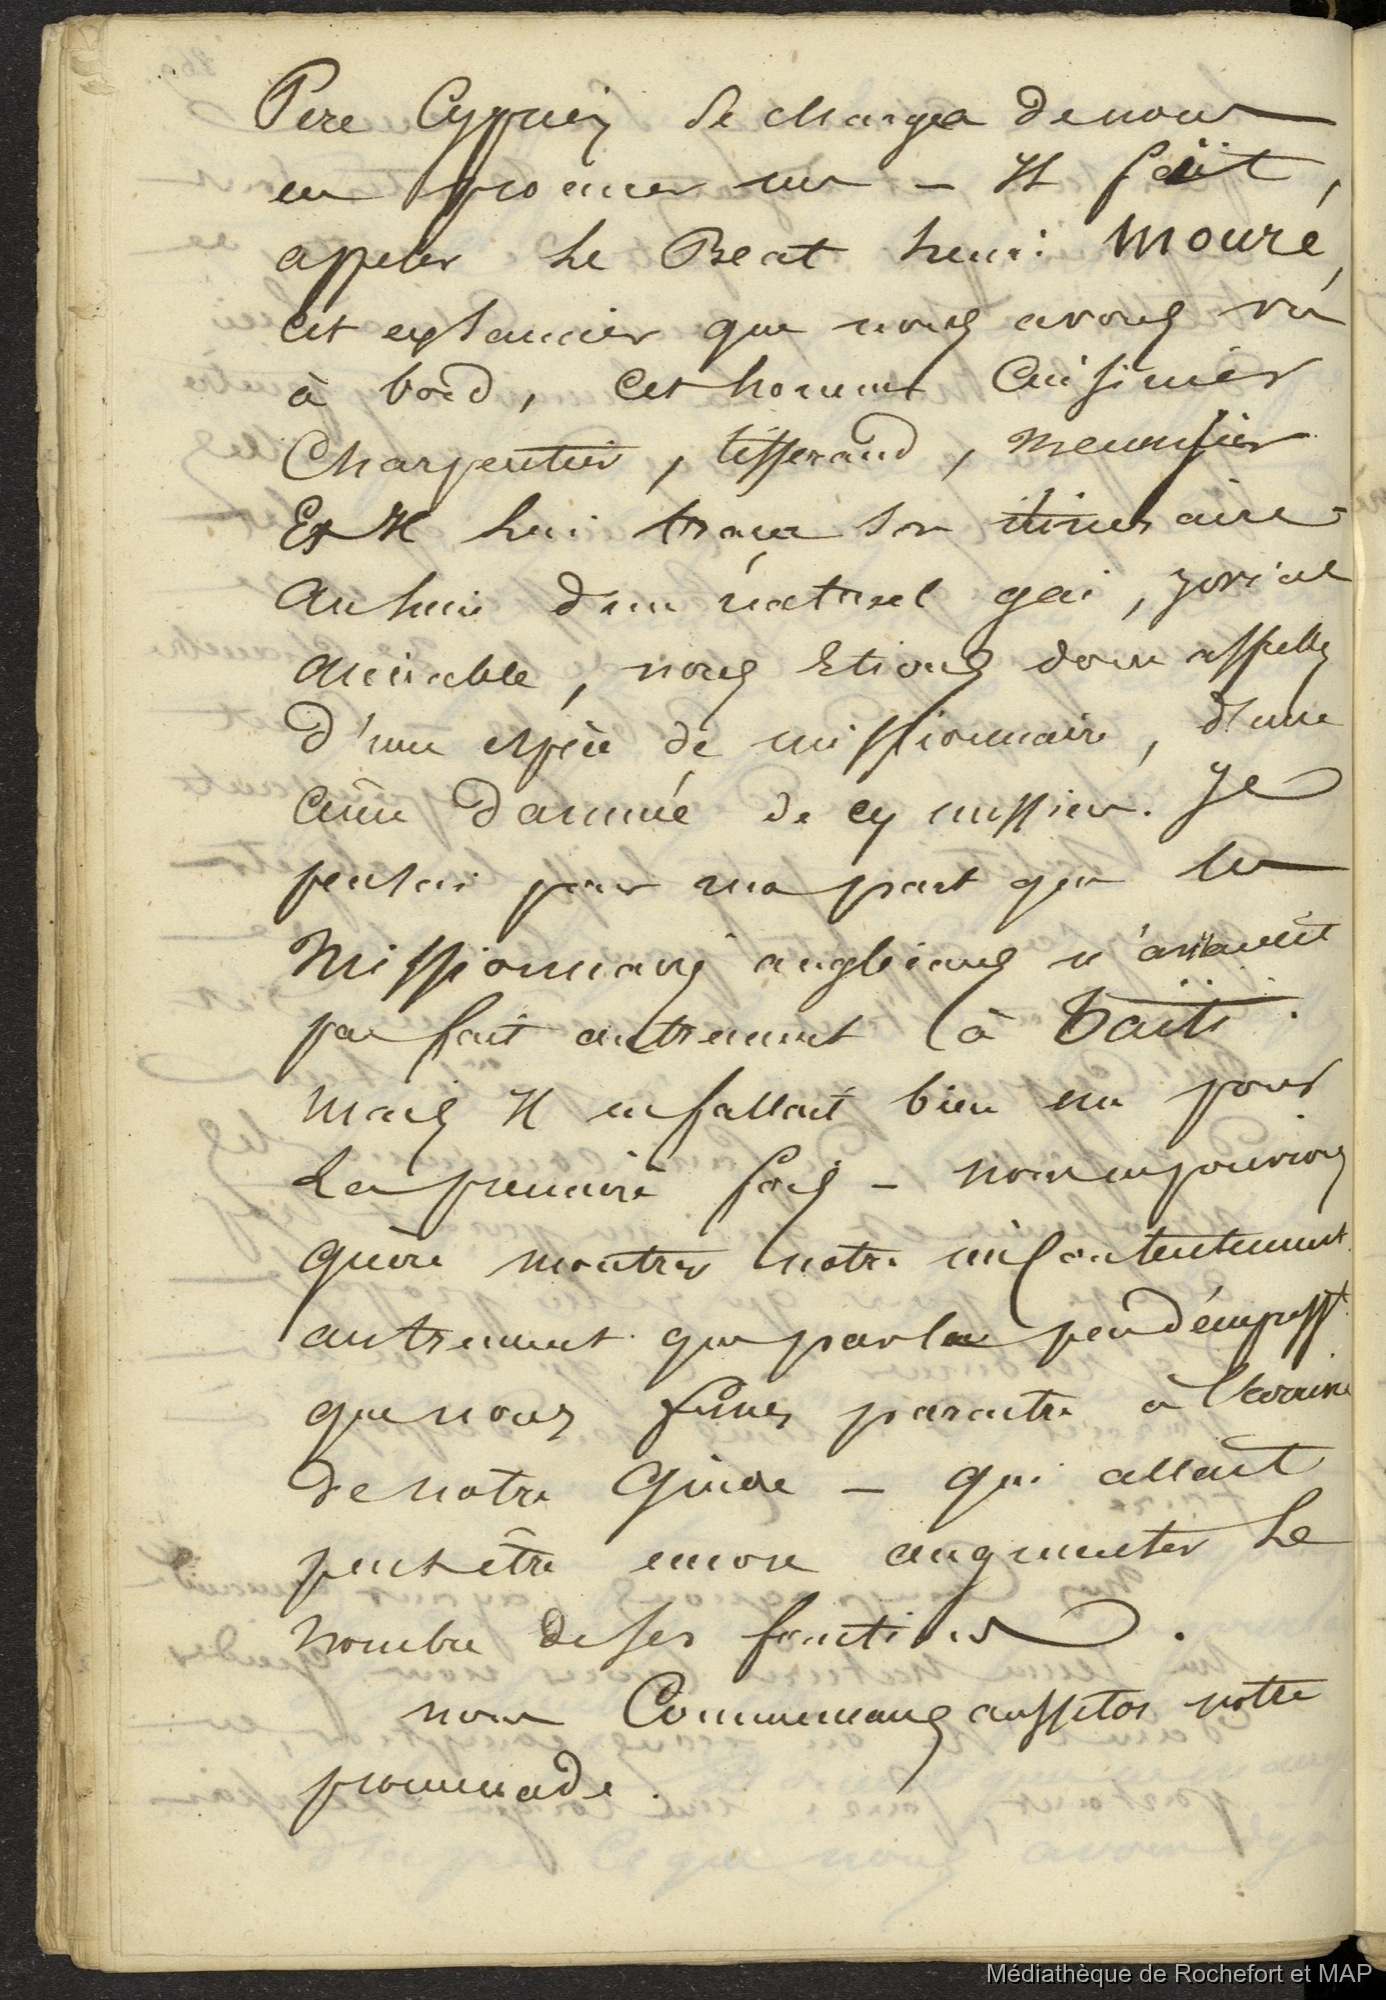 Pere Cyprien se chargea de nous
en procurer un - Il fait,
appeler le Beat henri Mouré,
cet ex lancier que nous avons vu
à bord, cet homme Cuisinier
Charpentier, tisserand, menuisier
Et Il lui traça son itineraire
au lieu d'un naturel gai, jovial
aimable, nous Etions donc
d'une espèce de missionnaire, d'une
âme damnée de ces messieurs. Je
pensai pour ma part que les
Missionnaires anglicans n'avaient
pas fait autrement à Taïti.
mais Il en fallait bien un pour
la premiere fois - nous ne pouvions
guère montrer notre mécontentement
autrement que par le peu d'empresst
que nous fimes paraitre à
de notre Guide - qui allait
peut être encore augmenter le
nombre de ses fonctions.
nous Commençames aussitot notre
promenade.
Médiathèque de Rochefort et MAP